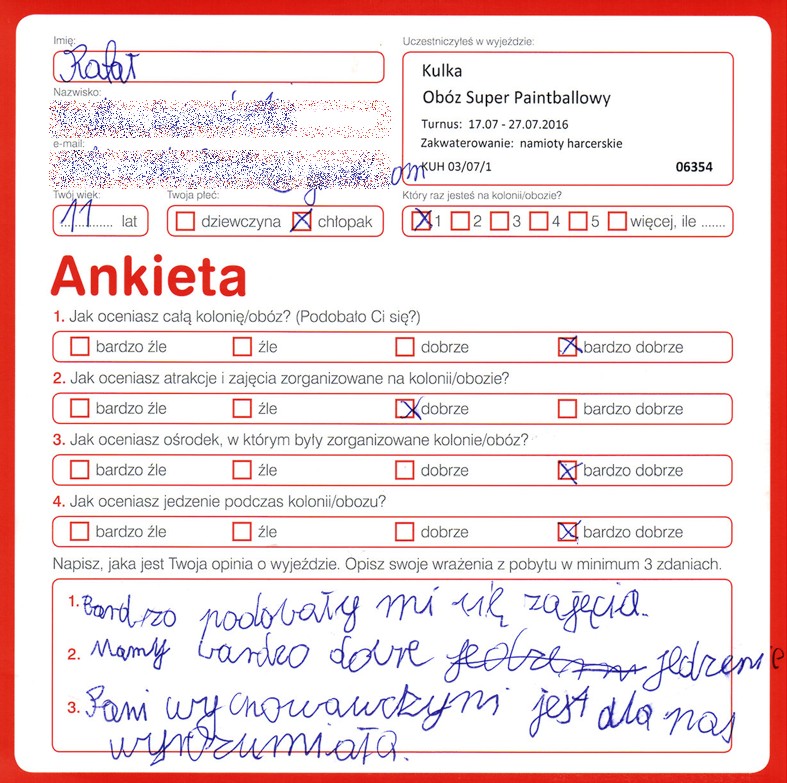 Imię:
Rafał
Uczestniczyłeś w wyjeździe:
Kulka
Obóz Super Paintballowy
Turnus: 17.07 - 27.07.2016
Zakwaterowanie: namioty harcerskie
KUH 03/07/1 06354
Nazwisko:
e-mail:
Twój wiek:
11 lat
Twoja płeć:
dziewczyna chłopak
Który raz jesteś na kolonii/obozie?
1 2 3 4 5 więcej, ile .......
Ankieta
1. Jak oceniasz całą kolonię/obóz? (Podobało Ci się?)
bardzo źle źle dobrze bardzo dobrze
2. Jak oceniasz atrakcje i zajęcia zorganizowane na kolonii/obozie?
bardzo źle źle dobrze bardzo dobrze
3. Jak oceniasz ośrodek, w którym były zorganizowane kolonie/obóz?
bardzo źle źle dobrze bardzo dobrze
4. Jak oceniasz jedzenie podczas kolonii/obozu?
bardzo źle źle dobrze bardzo dobrze
Napisz, jaka jest Twoja opinia o wyjeździe. Opisz swoje wrażenia z pobytu w minimum 3 zdaniach.
1. Bardzo podobały mi się zajęcia.
2. Mamy bardzo dobre jedzenie
3. Pani wychowawczyni jest dla nas
wyrozumiała.